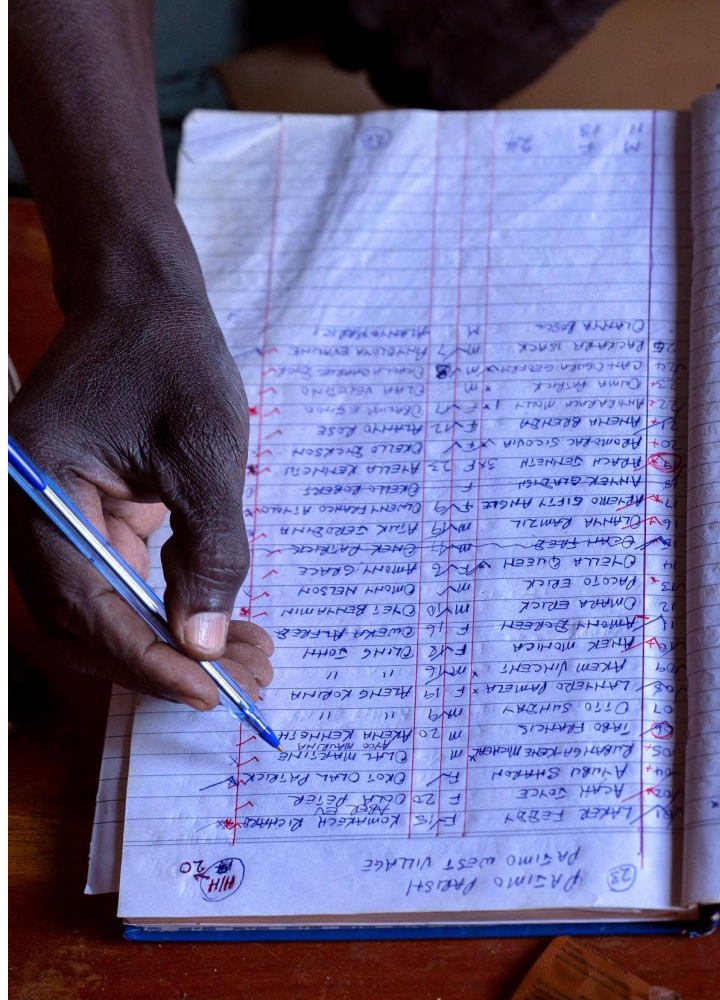 23 PAJIMO PARISH
PAJIMO WEST VILLAGE
H/H 20
01 LAKER FEDDY F 15 KOMAKECH RICHARD
ABER EV
02 ACAN JOYCE F 20 OLLA PETER
04 AYUBU SHARON F OROT OLAL PATRICK
05 RUBANGAKENE MICHEAL M OLAL MARTINE
AYOO MAURINA
06 TABO FRANCIS M 20 AKENA KENNETH
07 OTTO SUNDAY M 9 " "
08 LANYERO PAMELA F 19 ALENG KORINA
09 AKEM VINCENT M 16 " "
10 ANEK MONICA F 18 OLING JOHN
11 AMONY DOREEN F 16 OWEKA ALFRED
12 OMARA ERICK M 10 OYET BENJAMIN
13 PACOTO ERICK M OMONY NELSON
14 OYELLA QUEEN F 6 AMONY GRACE
15 OCAN FRED M ONEK PATRICK
16 OLANYA RAMZIL M 19 AJOK GEROSINA
17 APIYEMO GIFTY ANGLE F 9 OWENY FRANCO
18 ANYEK GLADISH F OKELLO ROBERT
19 ARACH JENNETH F 23 AYELLA KENNETH
20 AROMORAC SICOVIA F OKELLO DICKSON
21 ANENA BRENDA F 12 ALANYO ROSE
22 ANYIRARACH MOLLY F OBALIM EGINIO
23 OUMA PATRICK M OLAA VALENTINO
24 CAN-OGURA GEOFREY M 8
25 PACKARA ISACK M 7 ANYODYONA EVALINE
OLANYA BOSCO M
M F
11 13 24